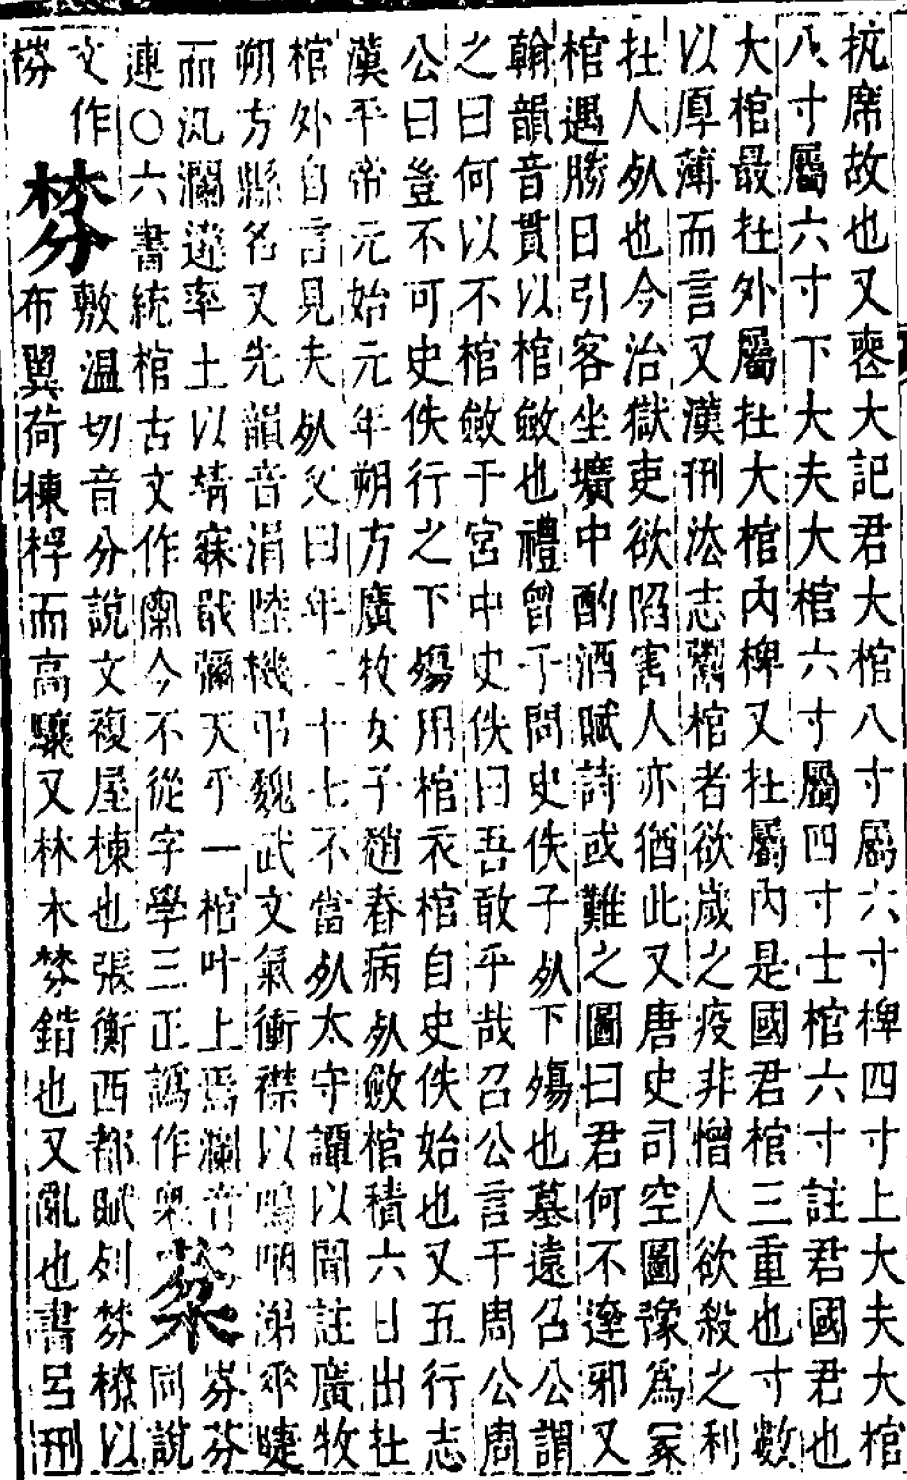 抗席故也又喪大記君大棺八寸屬六寸椑四寸上大夫大棺
八寸屬六寸下大夫大棺六寸屬四寸士棺六寸註君國君也
大棺最在外屬在大棺内椑又在屬內是國君棺三重也寸數
以厚薄而言又漢刑法志鬻棺者欲歲之疫非憎人欲殺之利
在人死也今治獄吏欲陷害人亦猶此又唐史司空圖豫爲冢
棺遇勝日引客坐壙中酌酒賦詩或難之圖曰君何不達邪又
翰韻音貫以棺斂也禮曾子問史佚子死下殤也墓遠召公謂
之曰何以不棺斂于宮中史佚曰吾敢乎哉召公言于周公周
公曰豈不可史佚行之下殤用棺衣棺自史佚始也又五行志
漢平帝元始元年朔方廣牧女子趙春病死斂棺積六日出在
棺外自言見夫死父曰年二十七不當死太守譚以聞註廣牧
朔方縣名又先韻音涓陸機弔魏武文氣衝襟以嗚咽涕垂睫
而汍瀾違率土以靖寐戢彌天乎一棺叶上焉瀾音
連○六書統棺古文作𣞙今不從字學三正譌作槼 棻 芬芬同說
文作棼 棼 敷温切音分說文複屋棟也張衡西都賦列棼橑以
布翼荷棟桴而高驤又林木棼錯也又亂也書呂刑